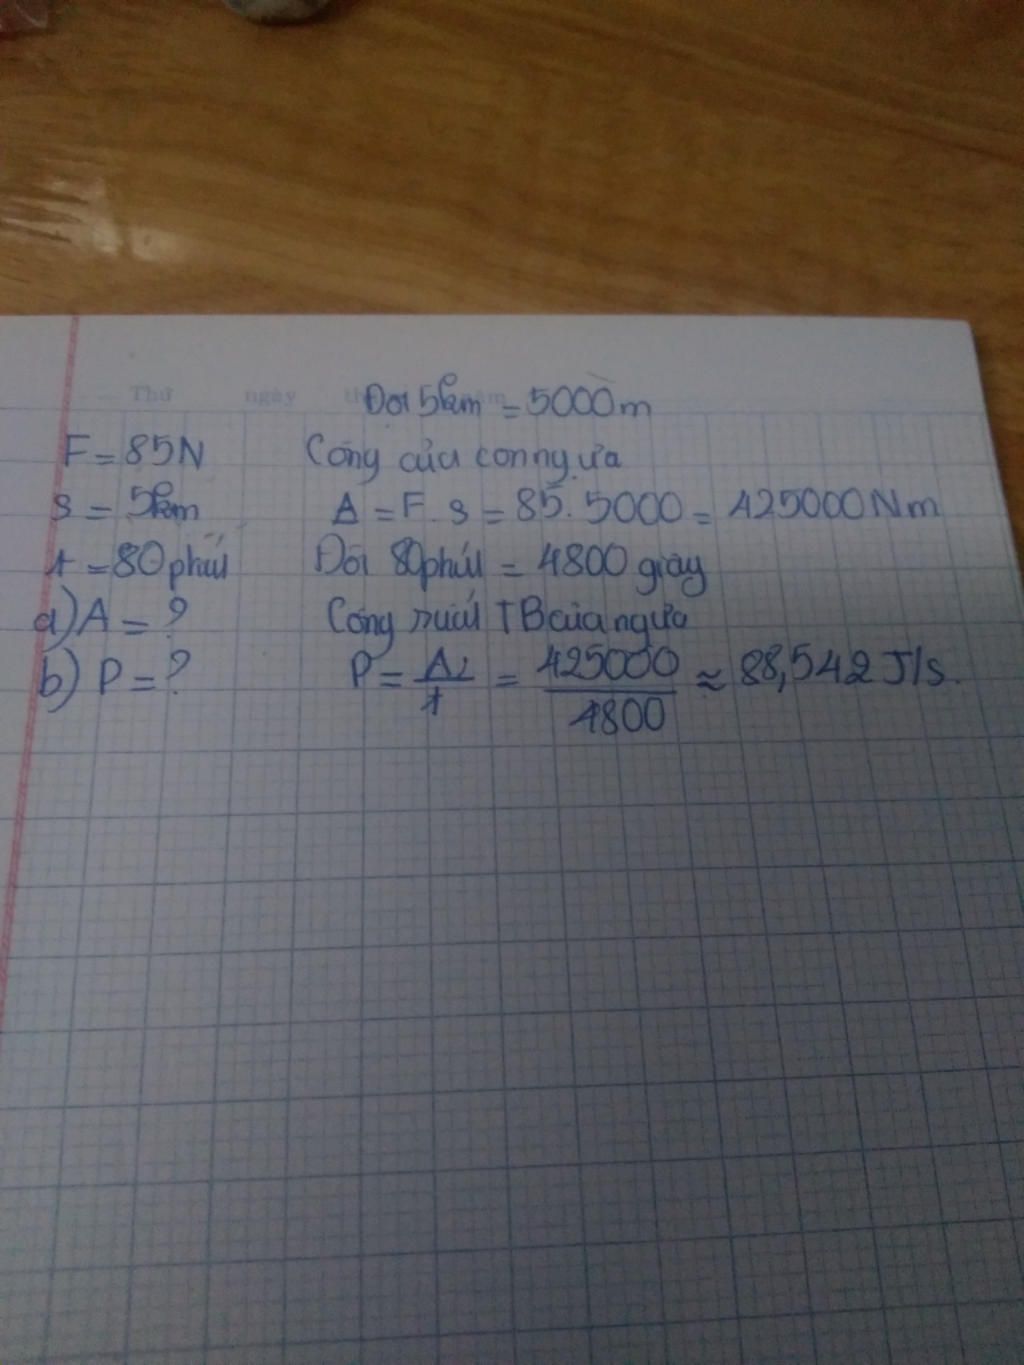 Thứ ngày
Đổi 5km = 5000m
F = 85N Công của con ngựa
s = 5km A = F. s = 85. 5000 = 425000 Nm
t = 80 phút Đổi 80 phút = 4800 giây
a) A = ? Công suất TB của ngựa
b) P = ? P = A/t = 425000/4800 ≈ 88,542 J/s.